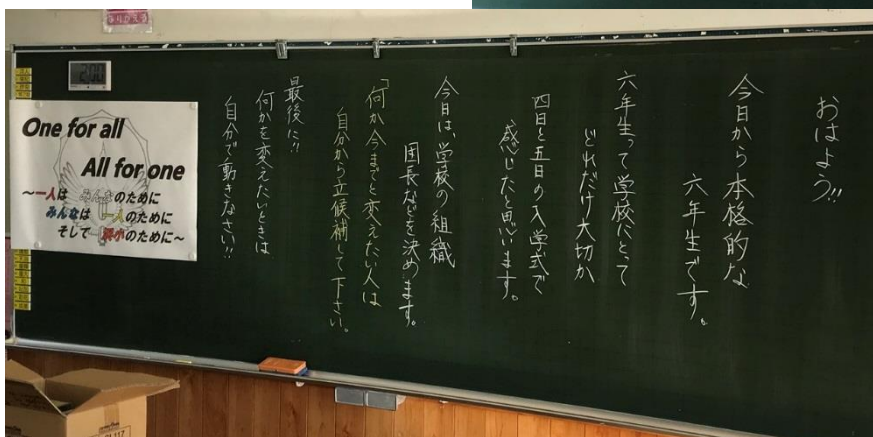 おはよう!!
今日から本格的な
六年生です。
六年生って学校にとって
どれだけ大切か
四日と五日の入学式で
感じたと思います。
今日は、学校の組織
団長などを決めます。
「何か今までと変えたい人は
自分から立候補して下さい。
最後に!!
何かを変えたいときは
自分で動きなさい!!
One for all
All for one
～一人は みんなのために
みんなは 一人のために
そして 小のために～
ふりかえり